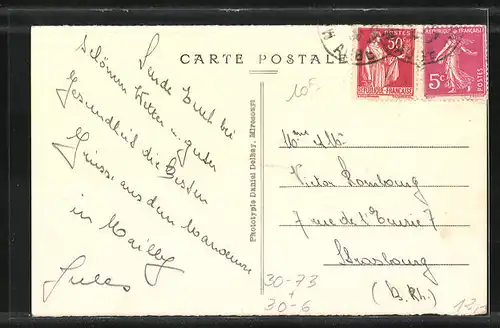 CARTE POSTALE
50c
POSTES
REPUBLIQUE FRANÇAISE
REPUBLIQUE FRANÇAISE
5c
POSTES
10F
Sende Euch bei
schönem Wetter u. guter
Gesundheit die besten
Grüsse aus dem Manöver
in Mailly
Jules
Phototypie Daniel Delboy, Mirecourt
Mme & Mr
Victor Lombourg
7 rue de l'Ecurie 7
Strasbourg
(B. Rh.)
30-73
30-6